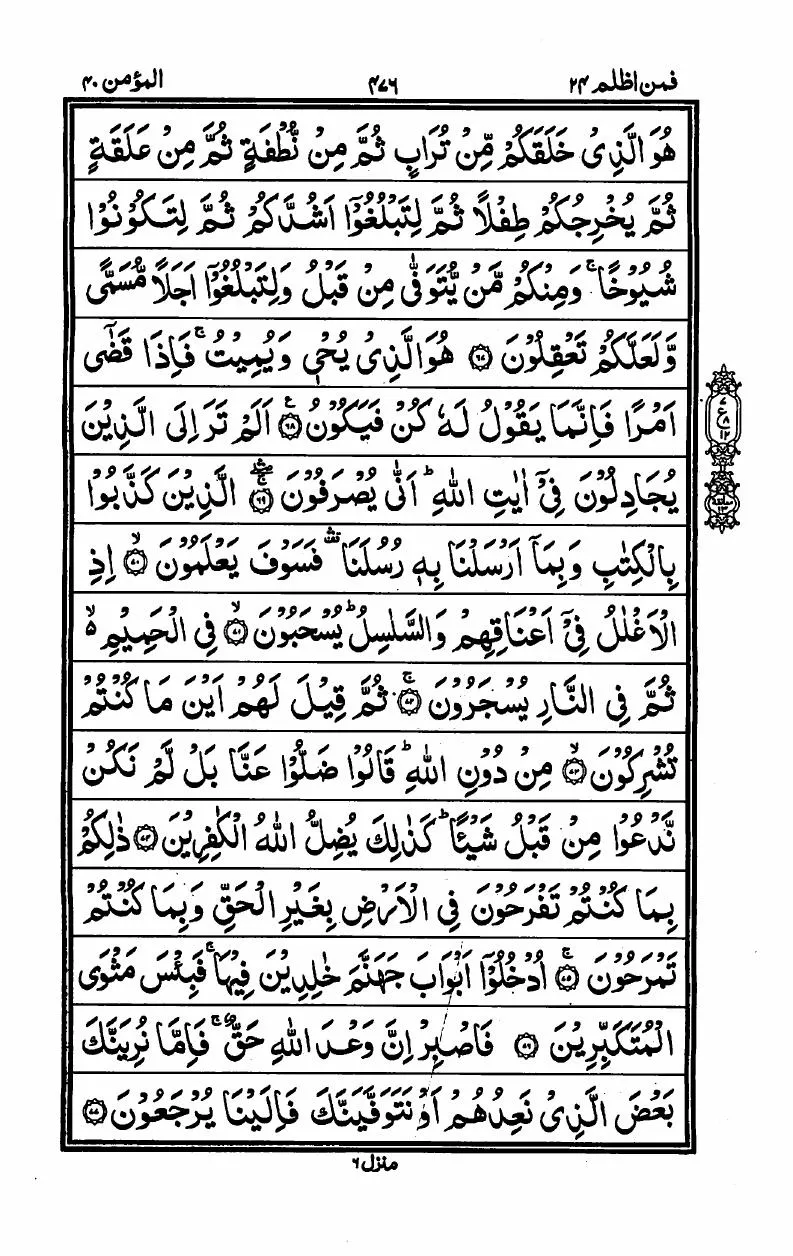 فمن اظلم ۲۴ ۴۷۶ المؤمن ۴۰
هُوَ الَّذِیْ خَلَقَكُمْ مِّنْ تُرَابٍ ثُمَّ مِنْ نُّطْفَةٍ ثُمَّ مِنْ عَلَقَةٍ
ثُمَّ یُخْرِجُكُمْ طِفْلًا ثُمَّ لِتَبْلُغُوْۤا اَشُدَّكُمْ ثُمَّ لِتَكُوْنُوْا
شُیُوْخًا ۚ وَمِنْكُمْ مَّنْ یُّتَوَفّٰى مِنْ قَبْلُ وَلِتَبْلُغُوْۤا اَجَلًا مُّسَمًّى
وَّلَعَلَّكُمْ تَعْقِلُوْنَ ﴿۶۷﴾ هُوَ الَّذِیْ یُحْیٖ وَیُمِیْتُ ۚ فَاِذَا قَضٰۤى
اَمْرًا فَاِنَّمَا یَقُوْلُ لَهٗ كُنْ فَیَكُوْنُ ﴿۶۸﴾ اَلَمْ تَرَ اِلَى الَّذِیْنَ
یُجَادِلُوْنَ فِیْۤ اٰیٰتِ اللّٰهِ ؕ اَنّٰى یُصْرَفُوْنَ ﴿۶۹﴾ الَّذِیْنَ كَذَّبُوْا
بِالْكِتٰبِ وَبِمَاۤ اَرْسَلْنَا بِهٖ رُسُلَنَا ۛ فَسَوْفَ یَعْلَمُوْنَ ﴿۷۰﴾ اِذِ
الْاَغْلٰلُ فِیْۤ اَعْنَاقِهِمْ وَالسَّلٰسِلُ ؕ یُسْحَبُوْنَ ﴿۷۱﴾ فِی الْحَمِیْمِ ۙ۵
ثُمَّ فِی النَّارِ یُسْجَرُوْنَ ﴿۷۲﴾ ثُمَّ قِیْلَ لَهُمْ اَیْنَ مَا كُنْتُمْ
تُشْرِكُوْنَ ﴿۷۳﴾ مِنْ دُوْنِ اللّٰهِ ؕ قَالُوْا ضَلُّوْا عَنَّا بَلْ لَّمْ نَكُنْ
نَّدْعُوْا مِنْ قَبْلُ شَیْـًٔا ؕ كَذٰلِكَ یُضِلُّ اللّٰهُ الْكٰفِرِیْنَ ﴿۷۴﴾ ذٰلِكُمْ
بِمَا كُنْتُمْ تَفْرَحُوْنَ فِی الْاَرْضِ بِغَیْرِ الْحَقِّ وَبِمَا كُنْتُمْ
تَمْرَحُوْنَ ﴿۷۵﴾ اُدْخُلُوْۤا اَبْوَابَ جَهَنَّمَ خٰلِدِیْنَ فِیْهَا ۚ فَبِئْسَ مَثْوَى
الْمُتَكَبِّرِیْنَ ﴿۷۶﴾ فَاصْبِرْ اِنَّ وَعْدَ اللّٰهِ حَقٌّ ۚ فَاِمَّا نُرِیَنَّكَ
بَعْضَ الَّذِیْ نَعِدُهُمْ اَوْ نَتَوَفَّیَنَّكَ فَاِلَیْنَا یُرْجَعُوْنَ ﴿۷۷﴾
منزل ۶